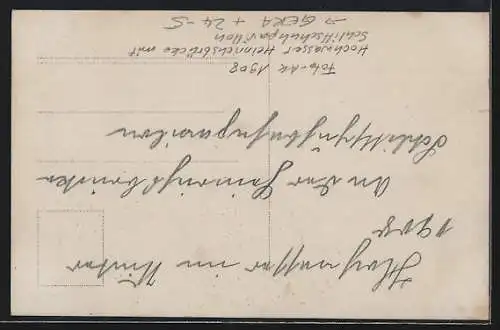 Hochwasser im Winter
1908
An der Heinrichsbrücke
Schlittschuhpavillon
Foto-AK 1908
Hochwasser Heinrichsbrücke mit
Schlittschuhpavillon
→ GERA + 24-5